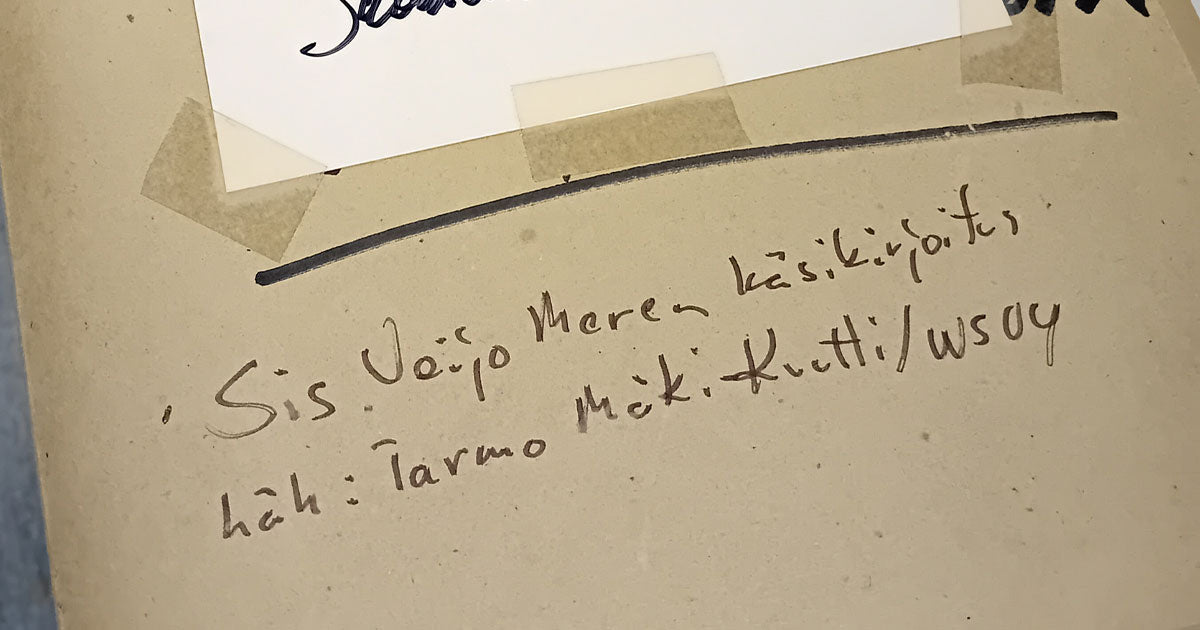 Sis. Veijo Meren käsikirjoitus
häh: Tarmo Mäki-Kuutti/WSOY